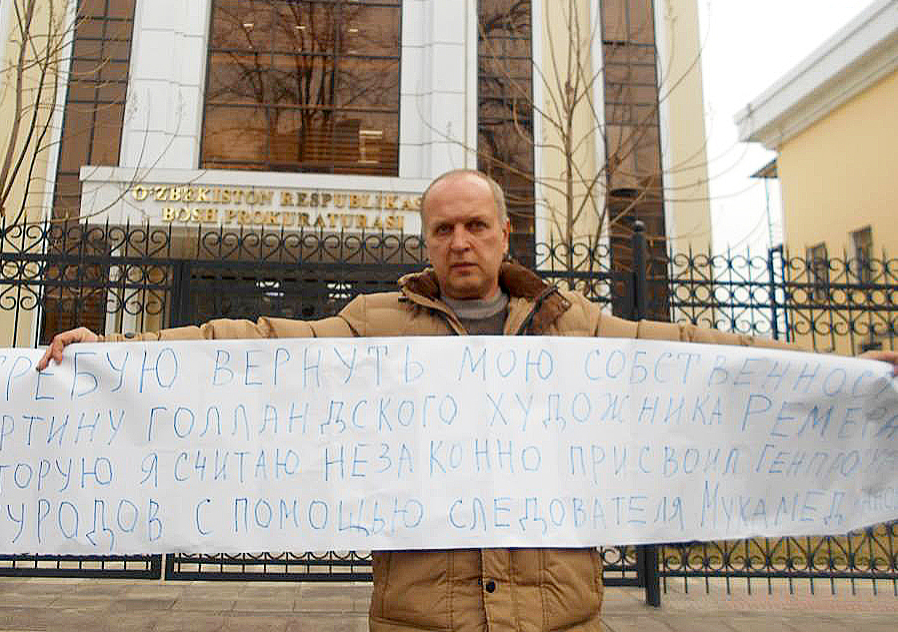 O‘ZBEKISTON RESPUBLIKASI
BOSH PROKURATURASI
ТРЕБУЮ ВЕРНУТЬ МОЮ СОБСТВЕННОС
РТИНУ ГОЛЛАНДСКОГО ХУДОЖНИКА РЕМБРА
ТОРУЮ Я СЧИТАЮ НЕЗАКОННО ПРИСВОИЛ ГЕНПРО
УРОДОВ С ПОМОЩЬЮ СЛЕДОВАТЕЛЯ МУХАМЕД